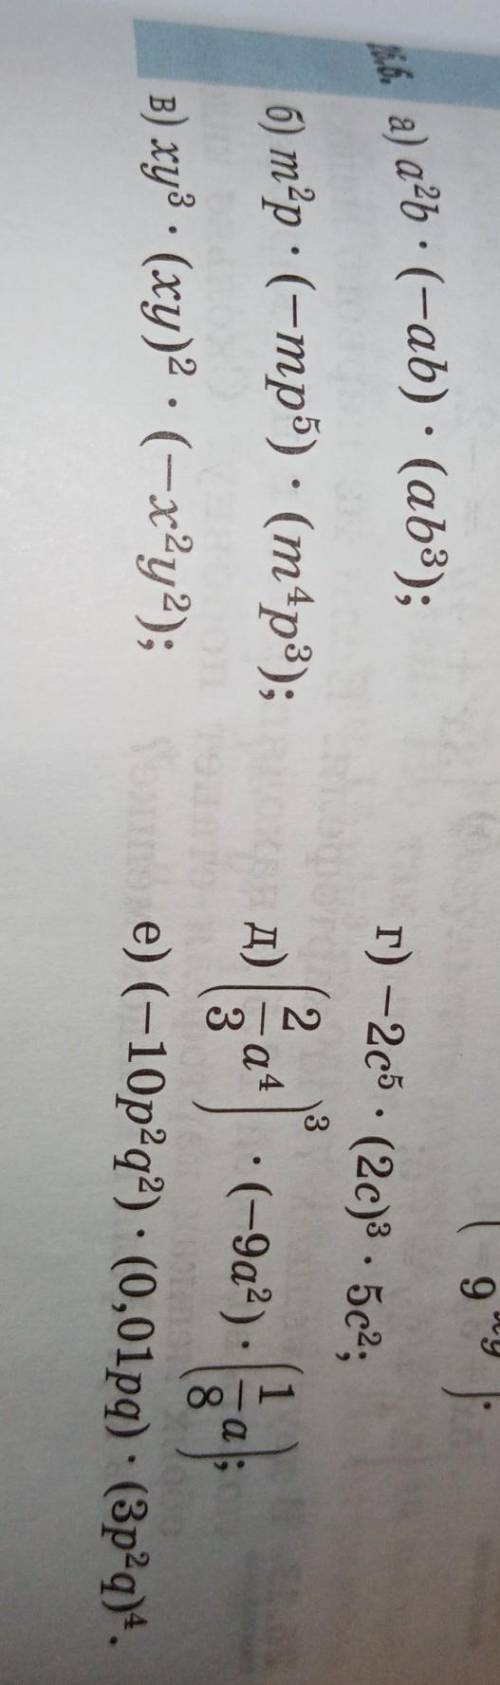 9 xy
16.6. а) a²b · (−ab) · (ab³);
г) −2c⁵ · (2c)³ · 5c²;
б) m²p · (−mp⁵) · (m⁴p³);
д) (2/3 a⁴)³ · (−9a²) · (1/8 a);
в) xy³ · (xy)² · (−x²y²);
е) (−10p²q²) · (0,01pq) · (3p²q)⁴.